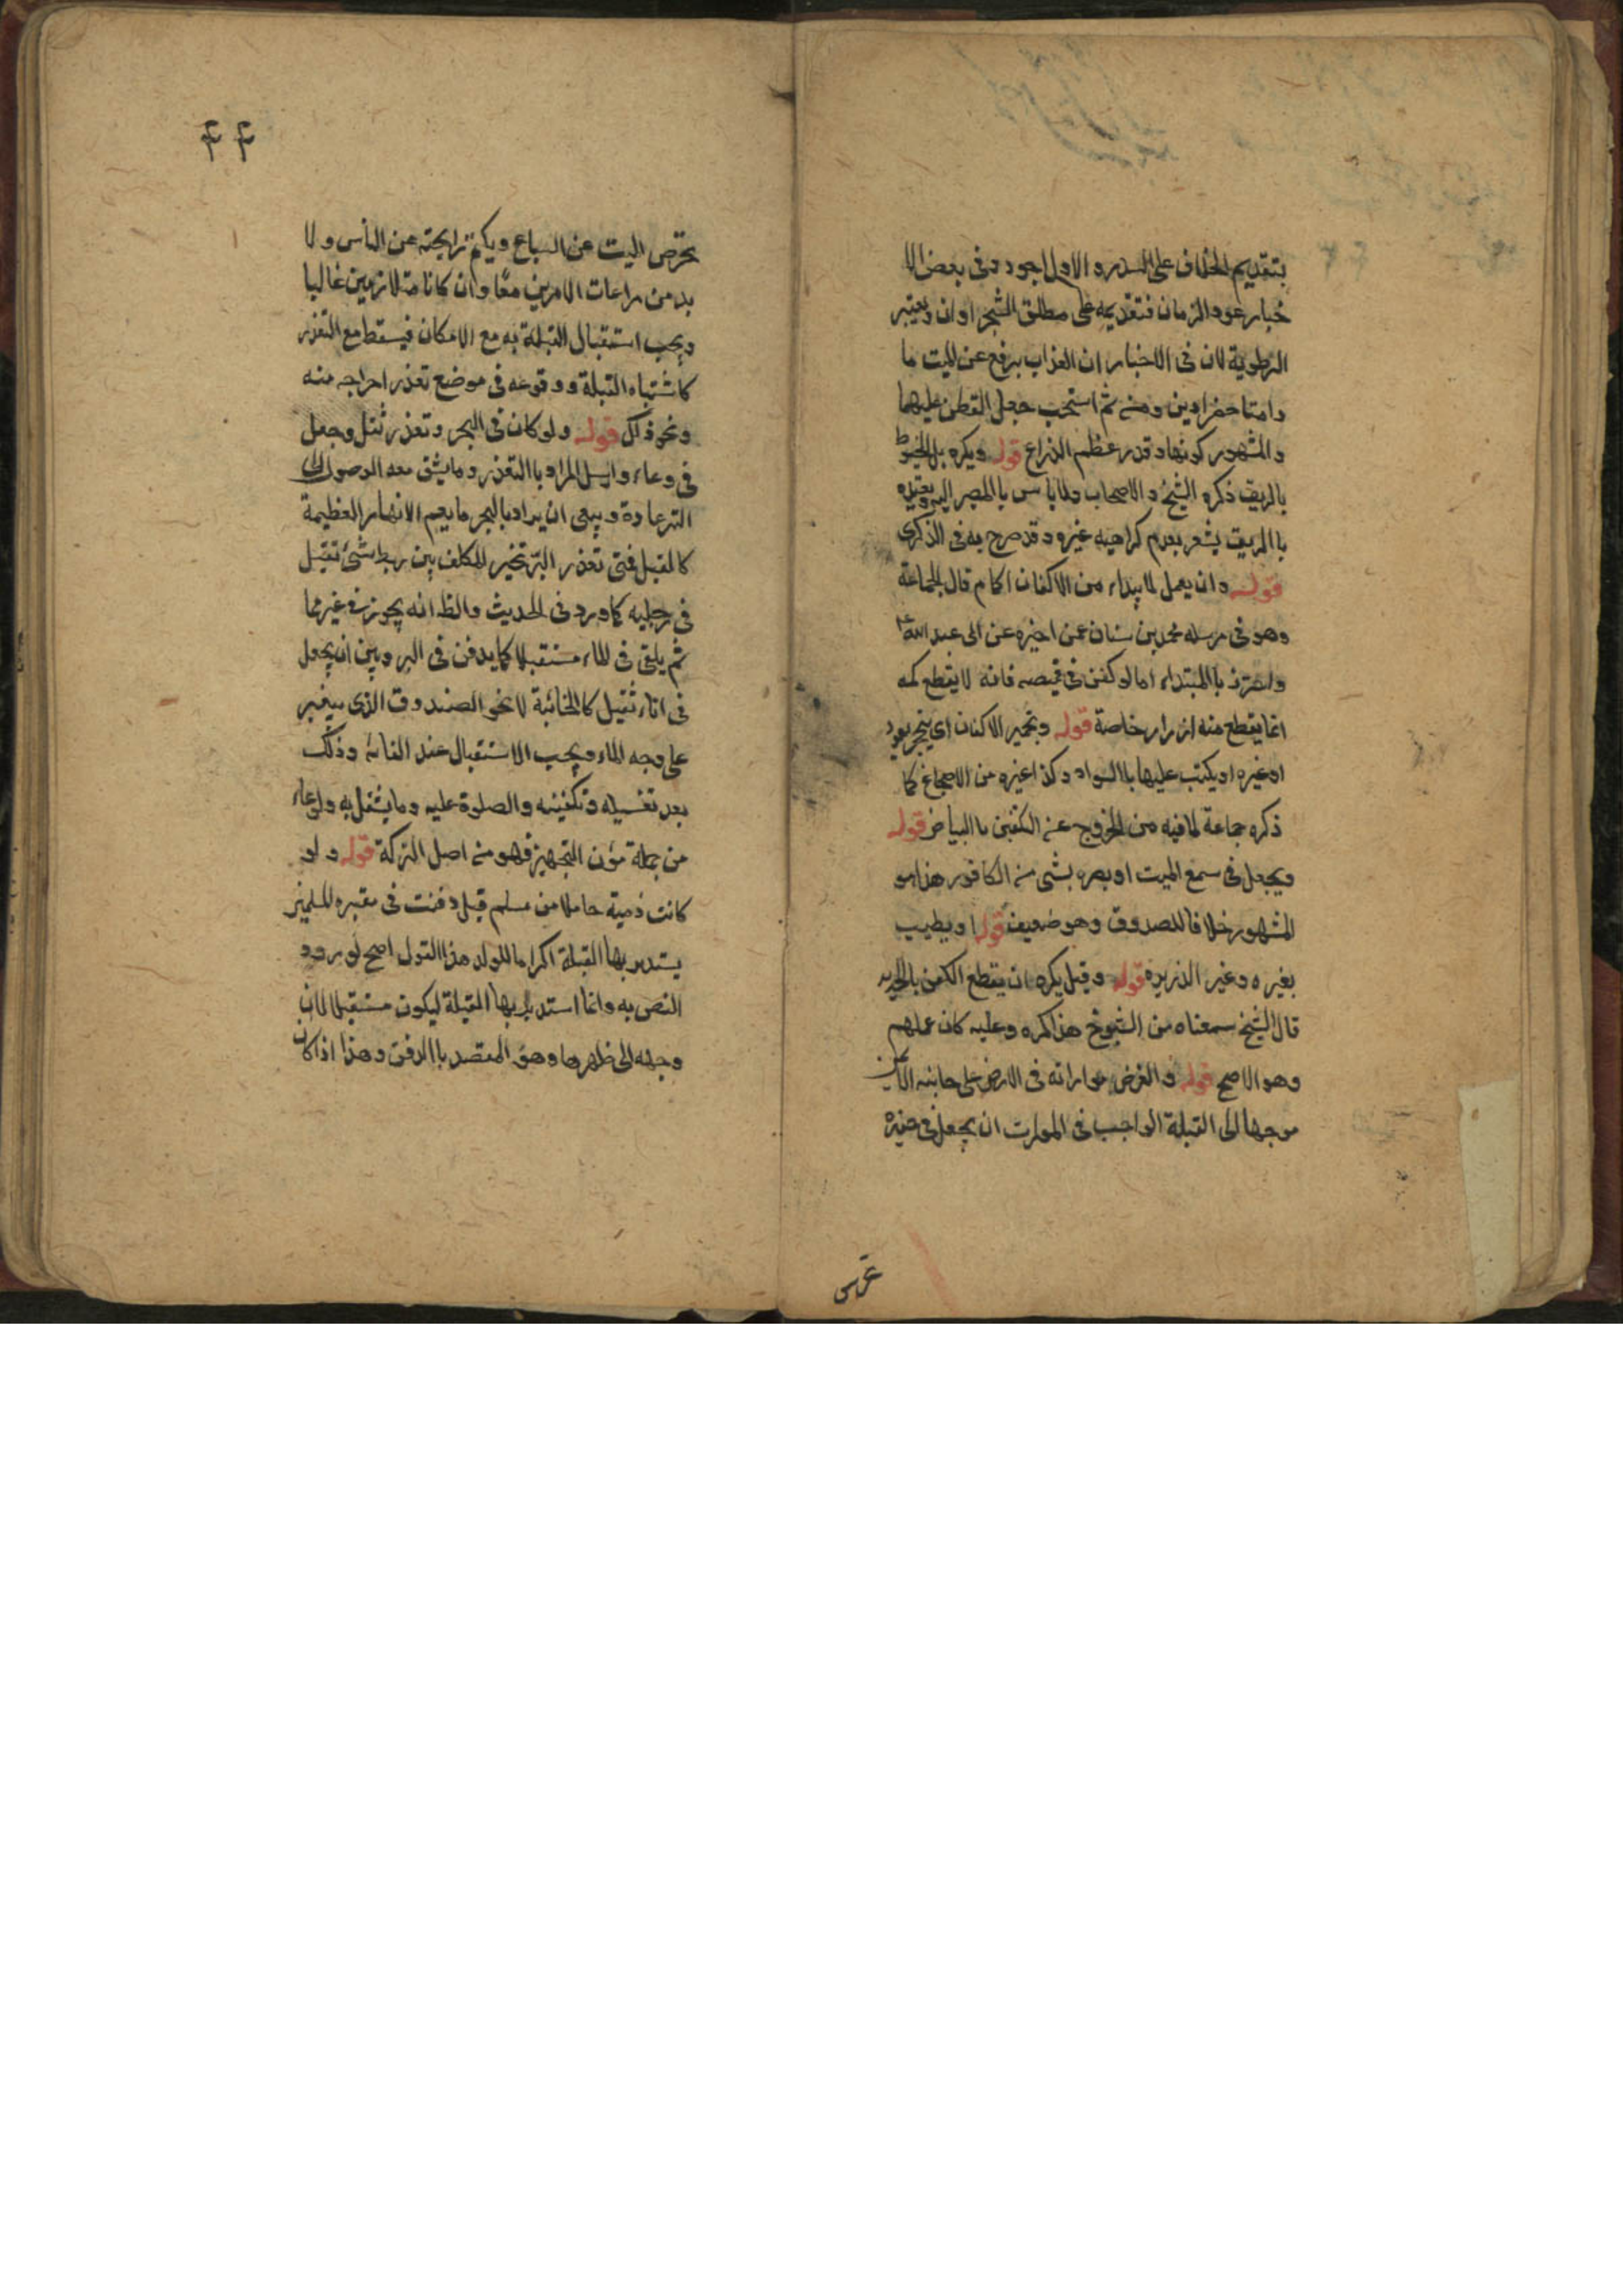 بتقديم الخلاف على السدر والاول اجود وفى بعض الا
خبار عود الرمان فتقديمه على مطلق الشجر اوان ويعتبر
الرطوبة لان فى الاخبار ان العذاب يرفع عن الميت ما
دامتا خضراوين ومنه ثم استحب جعل القطن عليهما
والمشهور كونها قدر عظم الذراع قوله ويكره بل الخيوط
بالريق ذكره الشيخ والاصحاب ولا باس بالبصر اليه وتقييده
باالريق يشعر بعدم كراهية غيره وقد صرح به فى الذكرى
قوله وان يعمل لما يبداء من الاكفان اكمام قال الجماعة
وهو فى مرسله محمد بن سنان عمن اخبره عن ابى عبد الله ع
واحترز باالمبتداء اما لو كفن فى قميصه فانه لا يقطع كمه
انما يقطع منه ازرار خاصة قوله وتجمير الاكفان اى تبخير بعود
او غيره او يكتب عليها باالسواد وكذا غيره من الاصباغ كما
ذكره جماعة لما فيه من الخروج عن التكفين باالبياض قوله
ويجعل فى سمع الميت او بصره بشى من الكافور هذا هو
المشهور خلافا للصدوق وهو ضعيف قوله او يطيب
بغيره وغير الذريره قوله وقيل يكره ان يقطع الكفن بالحديد
قال الشيخ سمعناه من الشيوخ هذا كره وعليه كان عملهم
وهو الاصح قوله والفرض مواراته فى الارض على جانبه الايمن
موجها الى القبلة الواجب فى الموارت ان يجعل فى حفيرة
تحرس
۴۴
تحرص الميت عن السباع ويكتم رايحته عن الناس ولا
بد من مراعات الامرين معًا وان كانا متلازمين غالبا
ويجب استقبال القبلة به مع الامكان فيسقط مع التعذر
كاشتباه القبلة ووقوعه فى موضع تعذر اخراجه منه
ونحو ذلك قوله ولو كان فى البحر وتعذر ثقل وجعل
فى وعاء وارسل المراد باالتعذر وما يشق معه الوصول الى
البر عادة وينبغى ان يراد بالبحر ما يعم الانهار العظيمة
كالنيل فمتى تعذر البر تخير المكلف بين ربط شئ ثقيل
فى رجليه كما ورد فى الحديث والظ انه يجوز فى غيرهما
ثم يلقى فى الماء مستقبلا كما يدفن فى البر وبين ان يجعل
فى اناء ثقيل كالخابئة لا نحو الصندوق الذى يبقى
على وجه الماء ويجب الاستقبال عند القائه وذلك
بعد تغسيله وتكفينه والصلوة عليه وما يثقل به والوعاء
من جملة مؤن التجهيز فهو من اصل التركة قوله ولو
كانت ذمية حاملا من مسلم قيل دفنت فى مقبره المسلمين
يستدبر بها القبلة اكراما للولد هذا القول اصح لورود
النص به وانما استدبر بها القبلة ليكون مستقبلا لان
وجهه الى ظهرها وهو المقصد باالدفن وهذا اذا كان